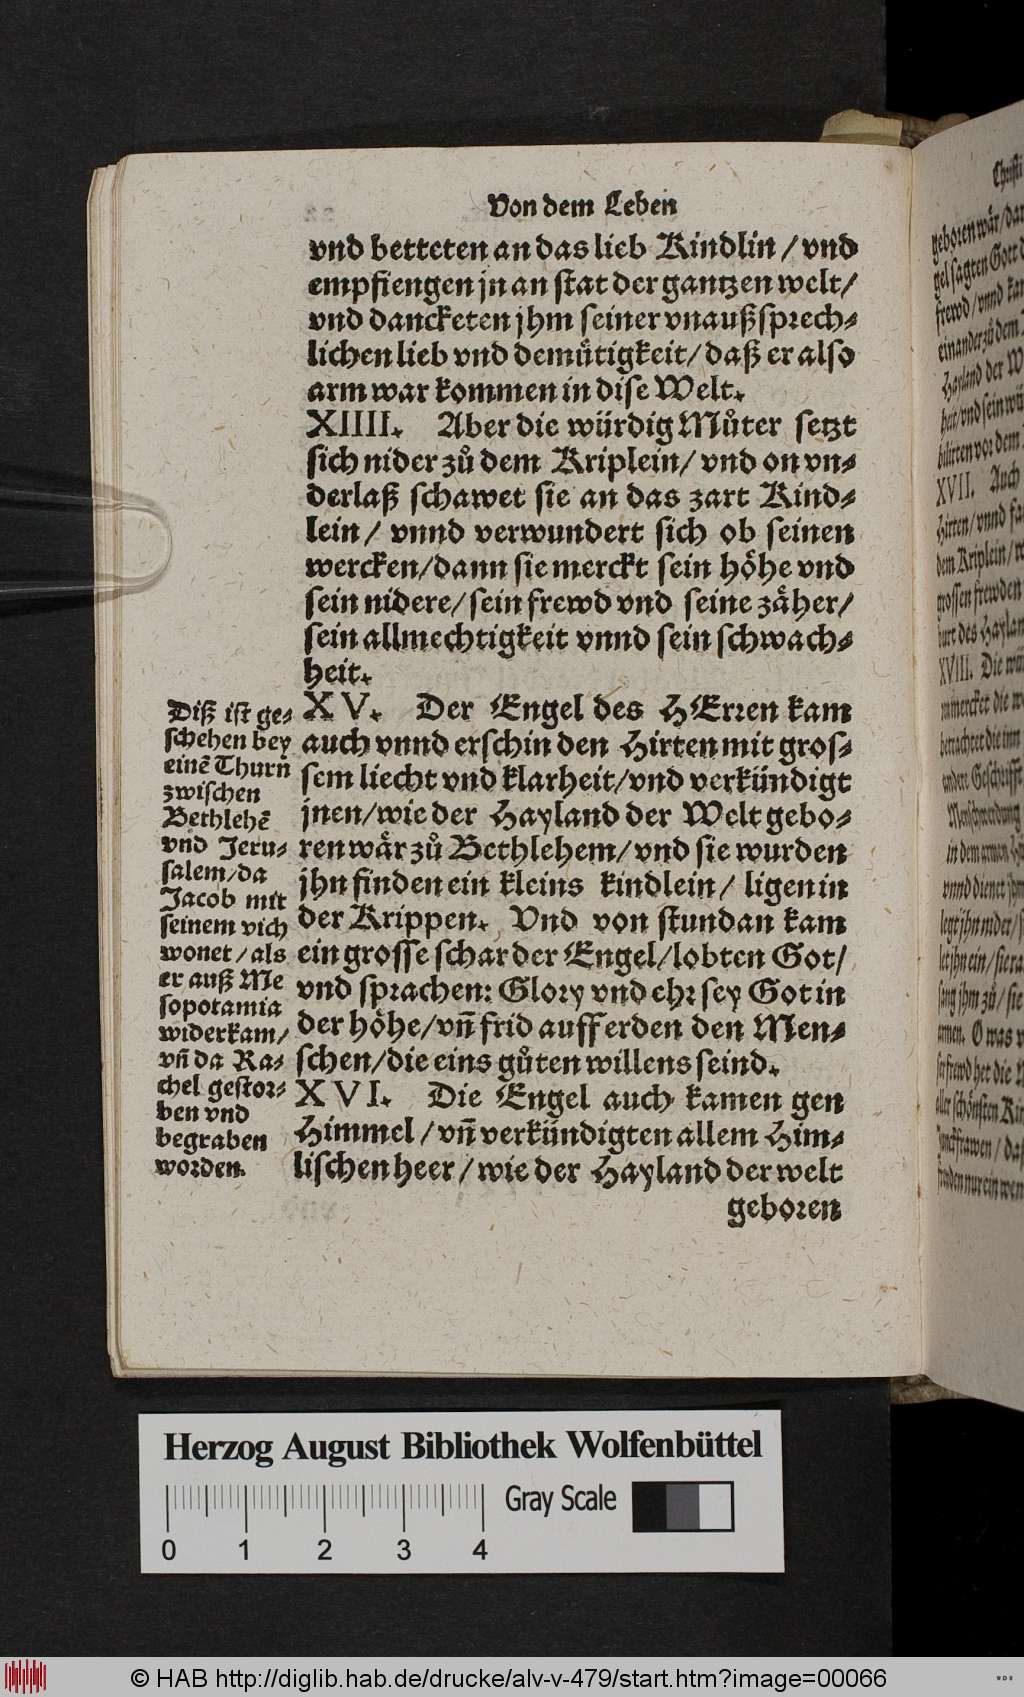 Von dem Leben
vnd betteten an das lieb Kindlin / vnd
empfiengen jn an stat der gantzen welt/
vnd dancketen jhm seiner vnaußsprech-
lichen lieb vnd demuͤtigkeit/ daß er also
arm war kommen in dise Welt.
XIIII. Aber die würdig Muͦter setzt
sich nider zuͦ dem Kriplein/ vnd on vn-
derlaß schawet sie an das zart Kind-
lein / vnnd verwundert sich ob seinen
wercken/dann sie merckt sein hoͤhe vnd
sein nidere/sein frewd vnd seine zaͤher/
sein allmechtigkeit vnnd sein schwach-
heit.
XV. Der Engel des HErren kam
auch vnnd erschin den Hirten mit gros-
sem liecht vnd klarheit/vnd verkündigt
jnen/wie der Hayland der Welt gebo-
ren waͤr zuͦ Bethlehem/vnd sie wurden
jhn finden ein kleins kindlein/ ligen in
der Krippen. Vnd von stundan kam
ein grosse schar der Engel/lobten Got/
vnd sprachen: Glory vnd ehr sey Got in
der hoͤhe/vñ frid auff erden den Men-
schen/die eins guͦten willens seind.
XVI. Die Engel auch kamen gen
Himmel /vñ verkündigten allem Him-
lischen heer / wie der Hayland der welt
geboren
Diß ist ge-
schehen bey
einẽ Thurn
zwischen
Bethlehẽ
vnd Jeru-
salem/da
Jacob mit
seinem vich
wonet / als
er auß Me
sopotamia
widerkam/
vñ da Ra-
chel gestor-
ben vnd
begraben
worden.
Christi
geboren waͤr/
gel sagten Gott
frewd / vnnd
einander zuͦ dem
Hayland der
heit/vnd sein
bilirten vor dem
XVII. Auch
Hirten/vnnd
dem Kriplein/
grossen frewden
burt des
XVIII. Die
betrachtet die
andere
Menschwerdung
vnnd dienet
legt jhn nider/
let jhn ein/
sang jhm zuͦ/sie
amen. O was
frewd het die
aller schoͤnsten
Junckfrawen /
finden nur ein
Herzog August Bibliothek Wolfenbüttel
Gray Scale
0 1 2 3 4
© HAB http://diglib.hab.de/drucke/alv-v-479/start.htm?image=00066